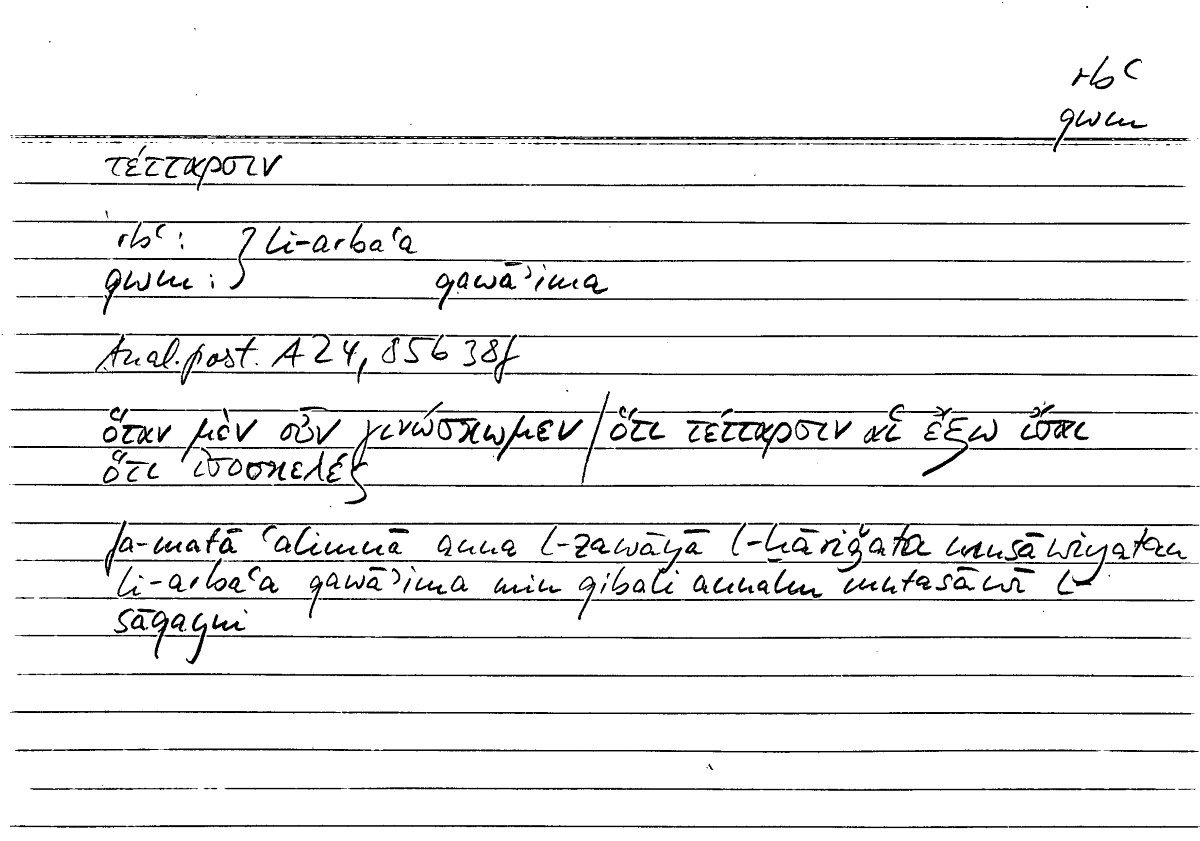 rbʿ
qwm
τέτταρσιν
rbʿ: } li-arbaʿa
qwm: qawāʾima
Anal. post. A 24, 85b 38f
ὅταν μὲν οὖν γινώσκωμεν / ὅτι τέτταρσιν αἱ ἔξω ἴσαι
ὅτι ἰσοσκελές
fa-matā ʿalimnā anna l-zawāyā l-ḫāriǧata musāwiyatan
li-arbaʿa qawāʾima min qibali annahu mutasāwī l-
sāqayni